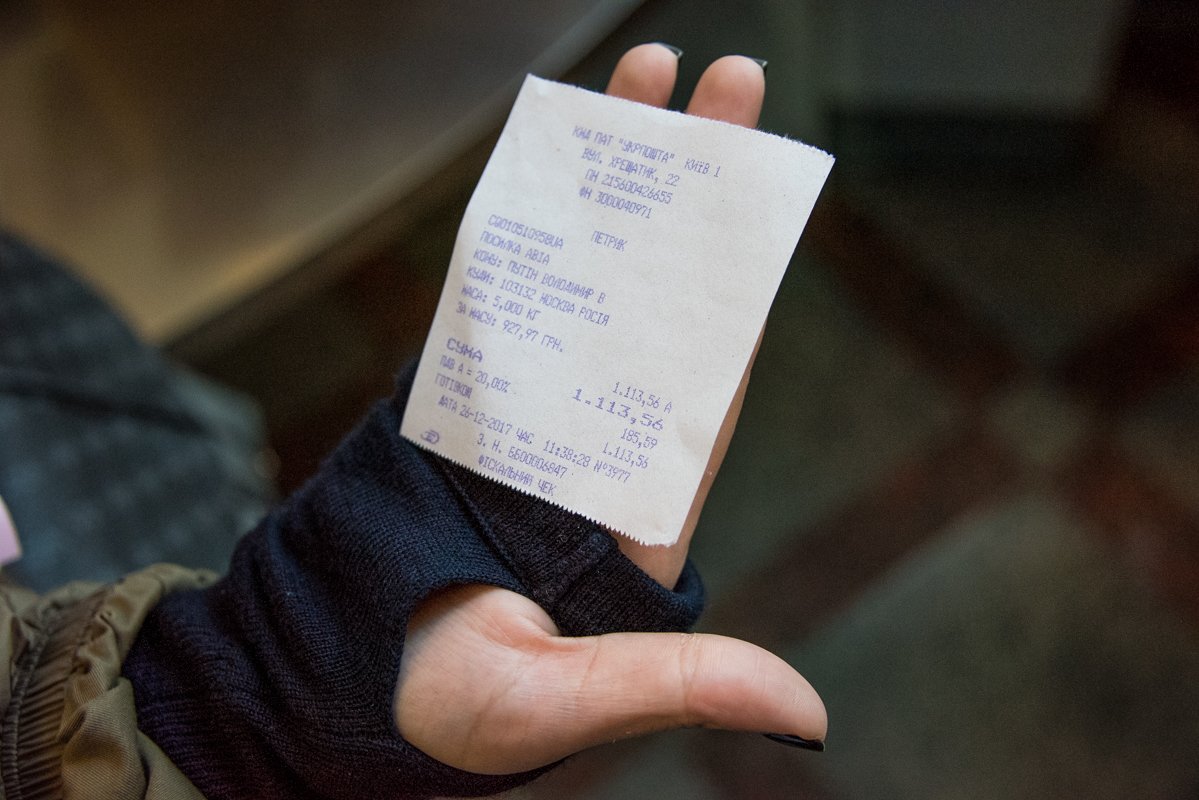 КМД ПАТ "УКРПОШТА" КИЇВ 1
ВУЛ. ХРЕЩАТИК, 22
ПН 215600426655
ФН 3000040971
CQ010510958UA ПЕТРИК
ПОСИЛКА АВІА
КОМУ: ПУТІН ВОЛОДИМИР В
КУДИ: 103132 МОСКВА РОСІЯ
МАСА: 5,000 КГ
ЗА МАСУ: 927,97 ГРН.
1.113,56 А
СУМА 1.113,56
ПДВ А = 20,00% 185,59
ГОТІВКОЮ 1.113,56
ДАТА 26-12-2017 ЧАС 11:38:28 №3977
З. Н. ББ00006847
ФІСКАЛЬНИЙ ЧЕК